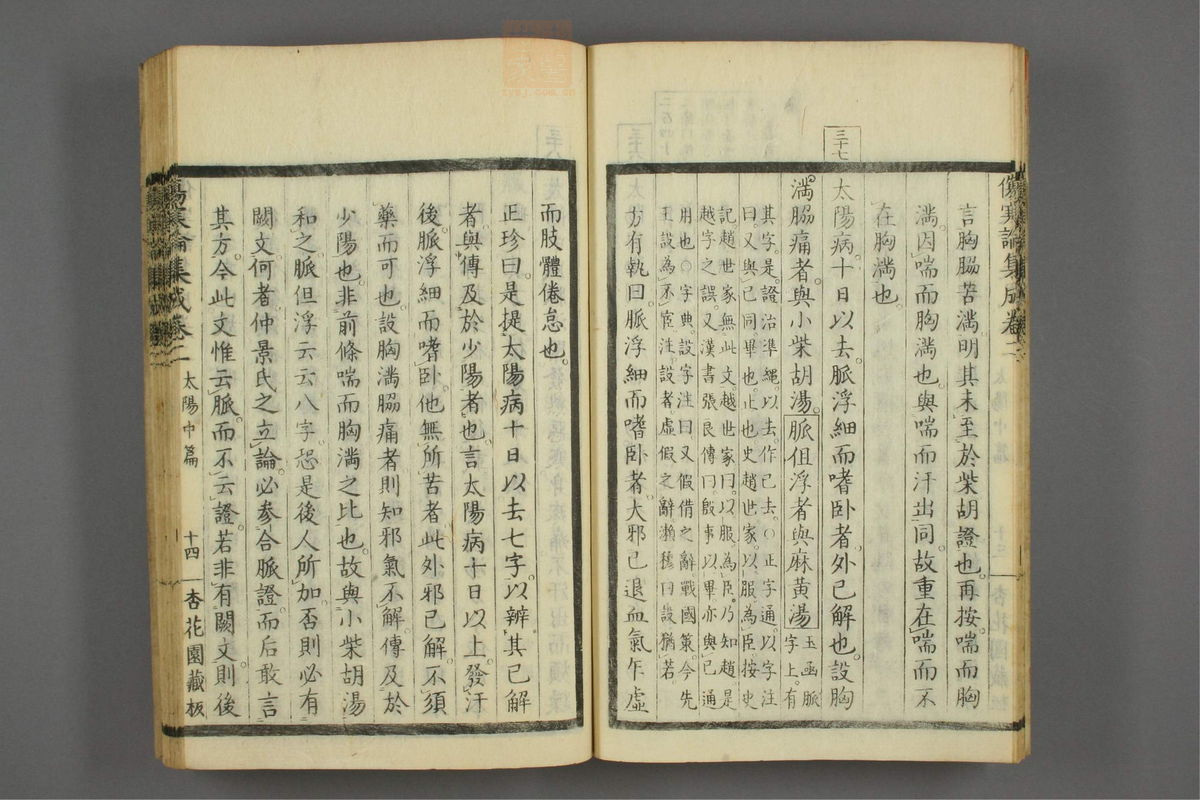 傷寒論集成卷二
言胸脇苦滿。明其未至於柴胡證也。再按。喘而胸
滿。因喘而胸滿也。與喘而汗出同。故重在喘而不
在胸滿也。
三十七
太陽病。十日以去。脈浮細而嗜臥者。外已解也。設胸
滿脇痛者。與小柴胡湯。脈但浮者與麻黃湯
玉函脈
字上。有
其字。是。證治準繩。以去。作已去。○正字通。以字注
曰。又與已同畢也。止也。史趙世家。以服爲臣。按史
記趙世家無此文。越世家曰。以服爲臣。乃知趙是
越字之誤。又漢書張良傳曰。殷事以畢。亦與已通
用也。○字典。設字注曰。又假借之辭。戰國策。今先
王設爲不宦。注設者虛假之辭。瀨穆曰。設猶若。
方有執曰。脈浮細而嗜臥者。大邪已退。血氣乍虛
而肢體倦怠也。
正珍曰。是提太陽病十日以去七字。以辨其已解
者。與傳及於少陽者也。言太陽病十日以上。發汗
後。脈浮細而嗜臥。他無所苦者。此外邪已解。不須
藥而可也。設胸滿脇痛者。則知邪氣不解。傳及於
少陽也。非前條喘而胸滿之比也。故與小柴胡湯
和之。脈但浮云云八字。恐是後人所加。否則必有
闕文。何者。仲景氏之立論。必參合脈證。而后敢言
其方。今此文惟云脈。而不云證。若非有闕文。則後
傷寒論集成卷二
太陽中篇
十四
杏花園藏板